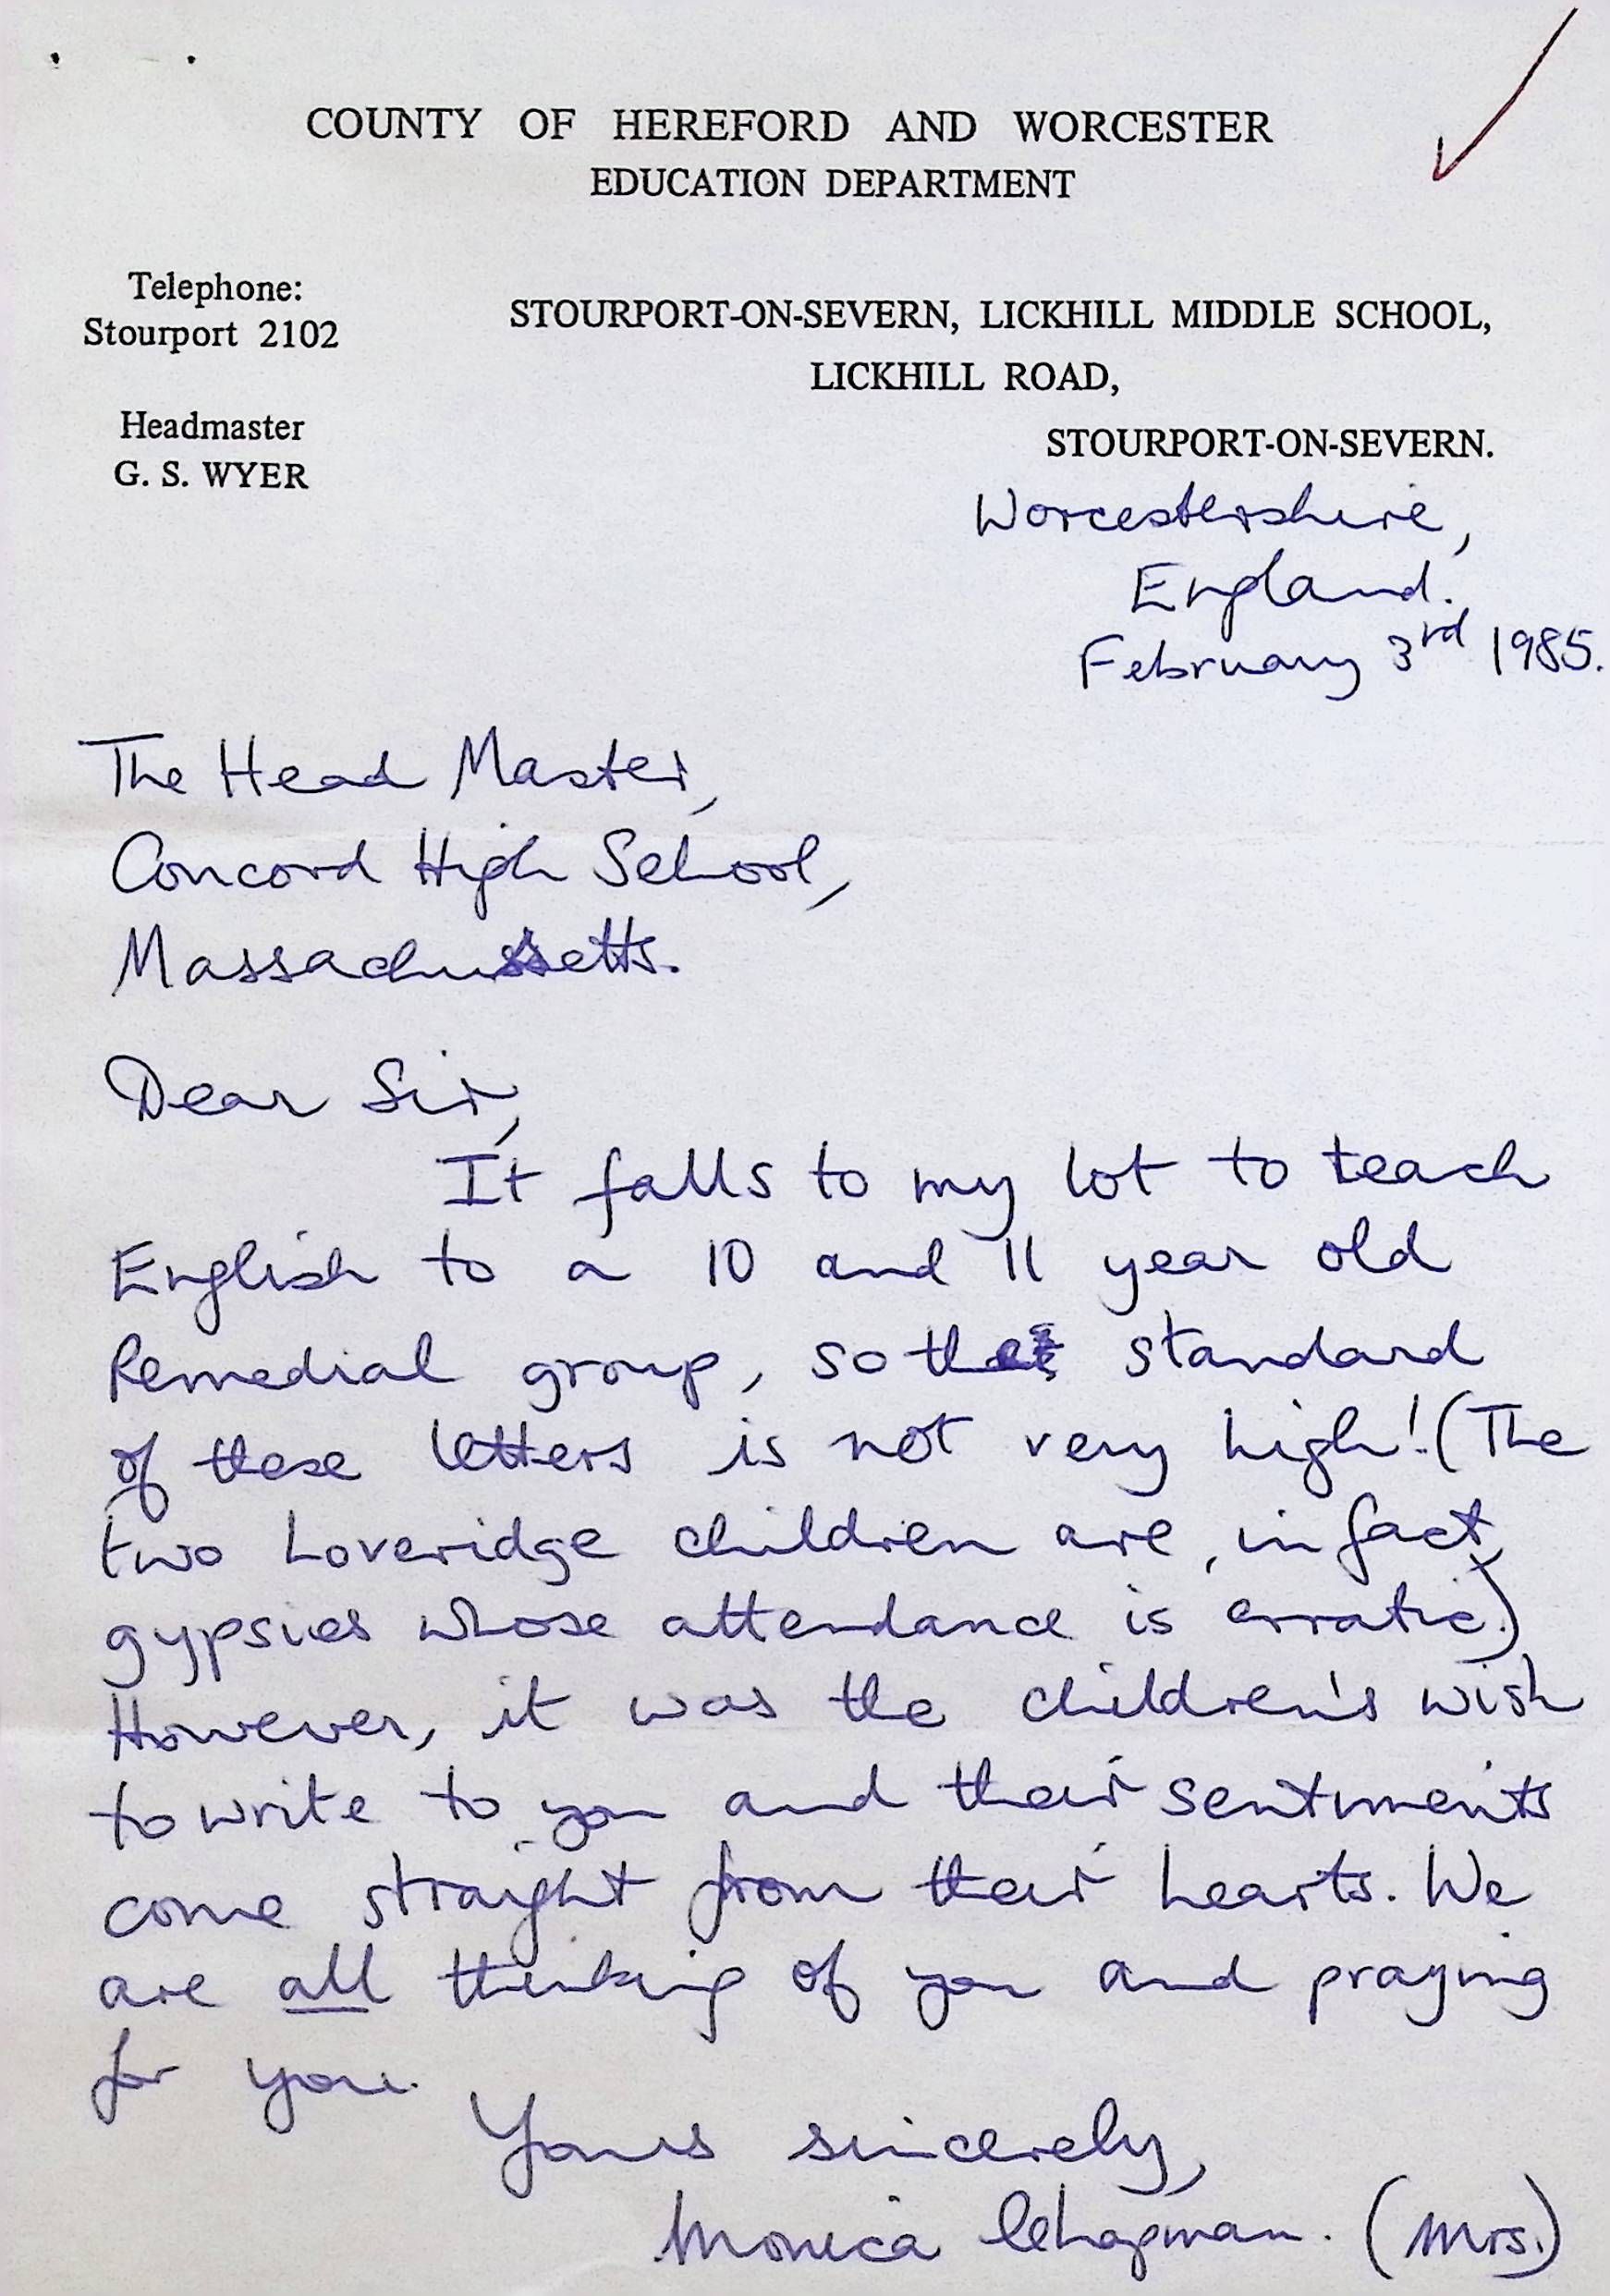 COUNTY OF HEREFORD AND WORCESTER
EDUCATION DEPARTMENT
Telephone:
Stourport 2102
Headmaster
G. S. WYER
STOURPORT-ON-SEVERN, LICKHILL MIDDLE SCHOOL,
LICKHILL ROAD,
STOURPORT-ON-SEVERN.
Worcestershire,
England.
February 3rd 1985.
The Head Master,
Concord High School,
Massachussetts.
Dear Sir,
It falls to my lot to teach
English to a 10 and 11 year old
Remedial group, so the standard
of these letters is not very high! (The
two Loveridge children are, in fact,
gypsies whose attendance is erratic.)
However, it was the children's wish
to write to you and their sentiments
come straight from their hearts. We
are all thinking of you and praying
for you.
Yours sincerely,
Monica Chapman. (Mrs.)